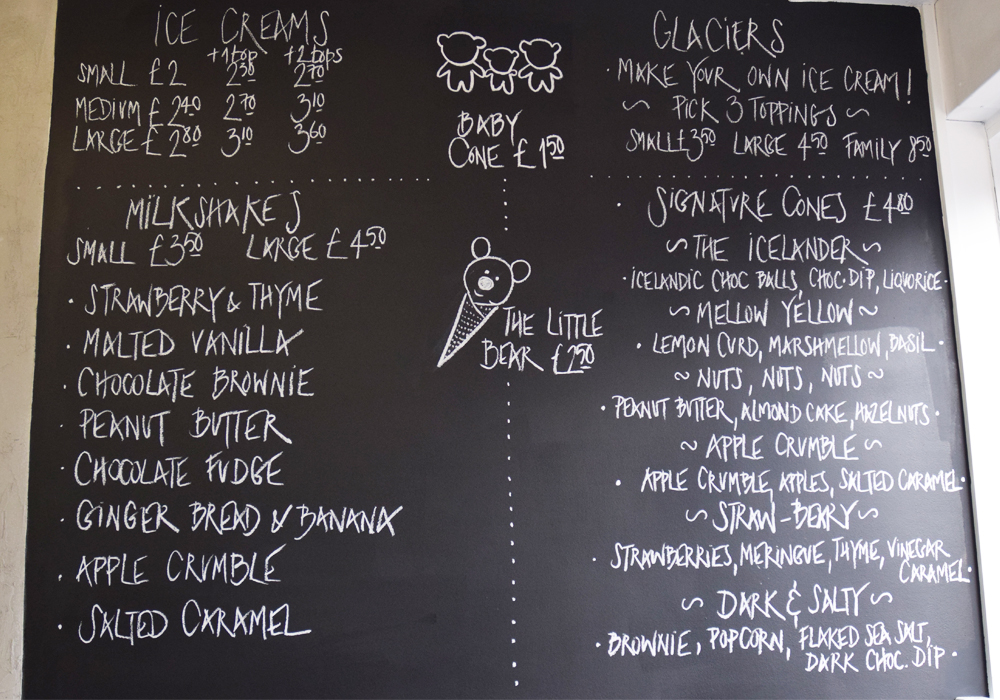 ICE CREAMS
+1 top +2 tops
SMALL £2 2.30 2.70
MEDIUM £2.40 2.70 3.10
LARGE £2.80 3.10 3.60
BABY
CONE £1.50
GLACIERS
· MAKE YOUR OWN ICE CREAM!
~ PICK 3 TOPPINGS ~
SMALL £3.50 LARGE 4.50 FAMILY 8.50
MILKSHAKES
SMALL £3.50 LARGE £4.50
· STRAWBERRY & THYME
· MALTED VANILLA
· CHOCOLATE BROWNIE
· PEANUT BUTTER
· CHOCOLATE FUDGE
· GINGER BREAD & BANANA
· APPLE CRUMBLE
· SALTED CARAMEL
THE LITTLE
BEAR £2.50
· SIGNATURE CONES £4.80
~ THE ICELANDER ~
· ICELANDIC CHOC BALLS, CHOC·DIP, LIQUORICE·
~ MELLOW YELLOW ~
· LEMON CURD, MARSHMELLOW, BASIL·
~ NUTS, NUTS, NUTS ~
· PEANUT BUTTER, ALMOND CAKE, HAZELNUTS·
~ APPLE CRUMBLE ~
· APPLE CRUMBLE, APPLES, SALTED CARAMEL·
~ STRAW-BEARY ~
· STRAWBERRIES, MERINGUE, THYME, VINEGAR
CARAMEL·
~ DARK & SALTY ~
· BROWNIE, POPCORN, FLAKED SEA SALT,
DARK CHOC. DIP·